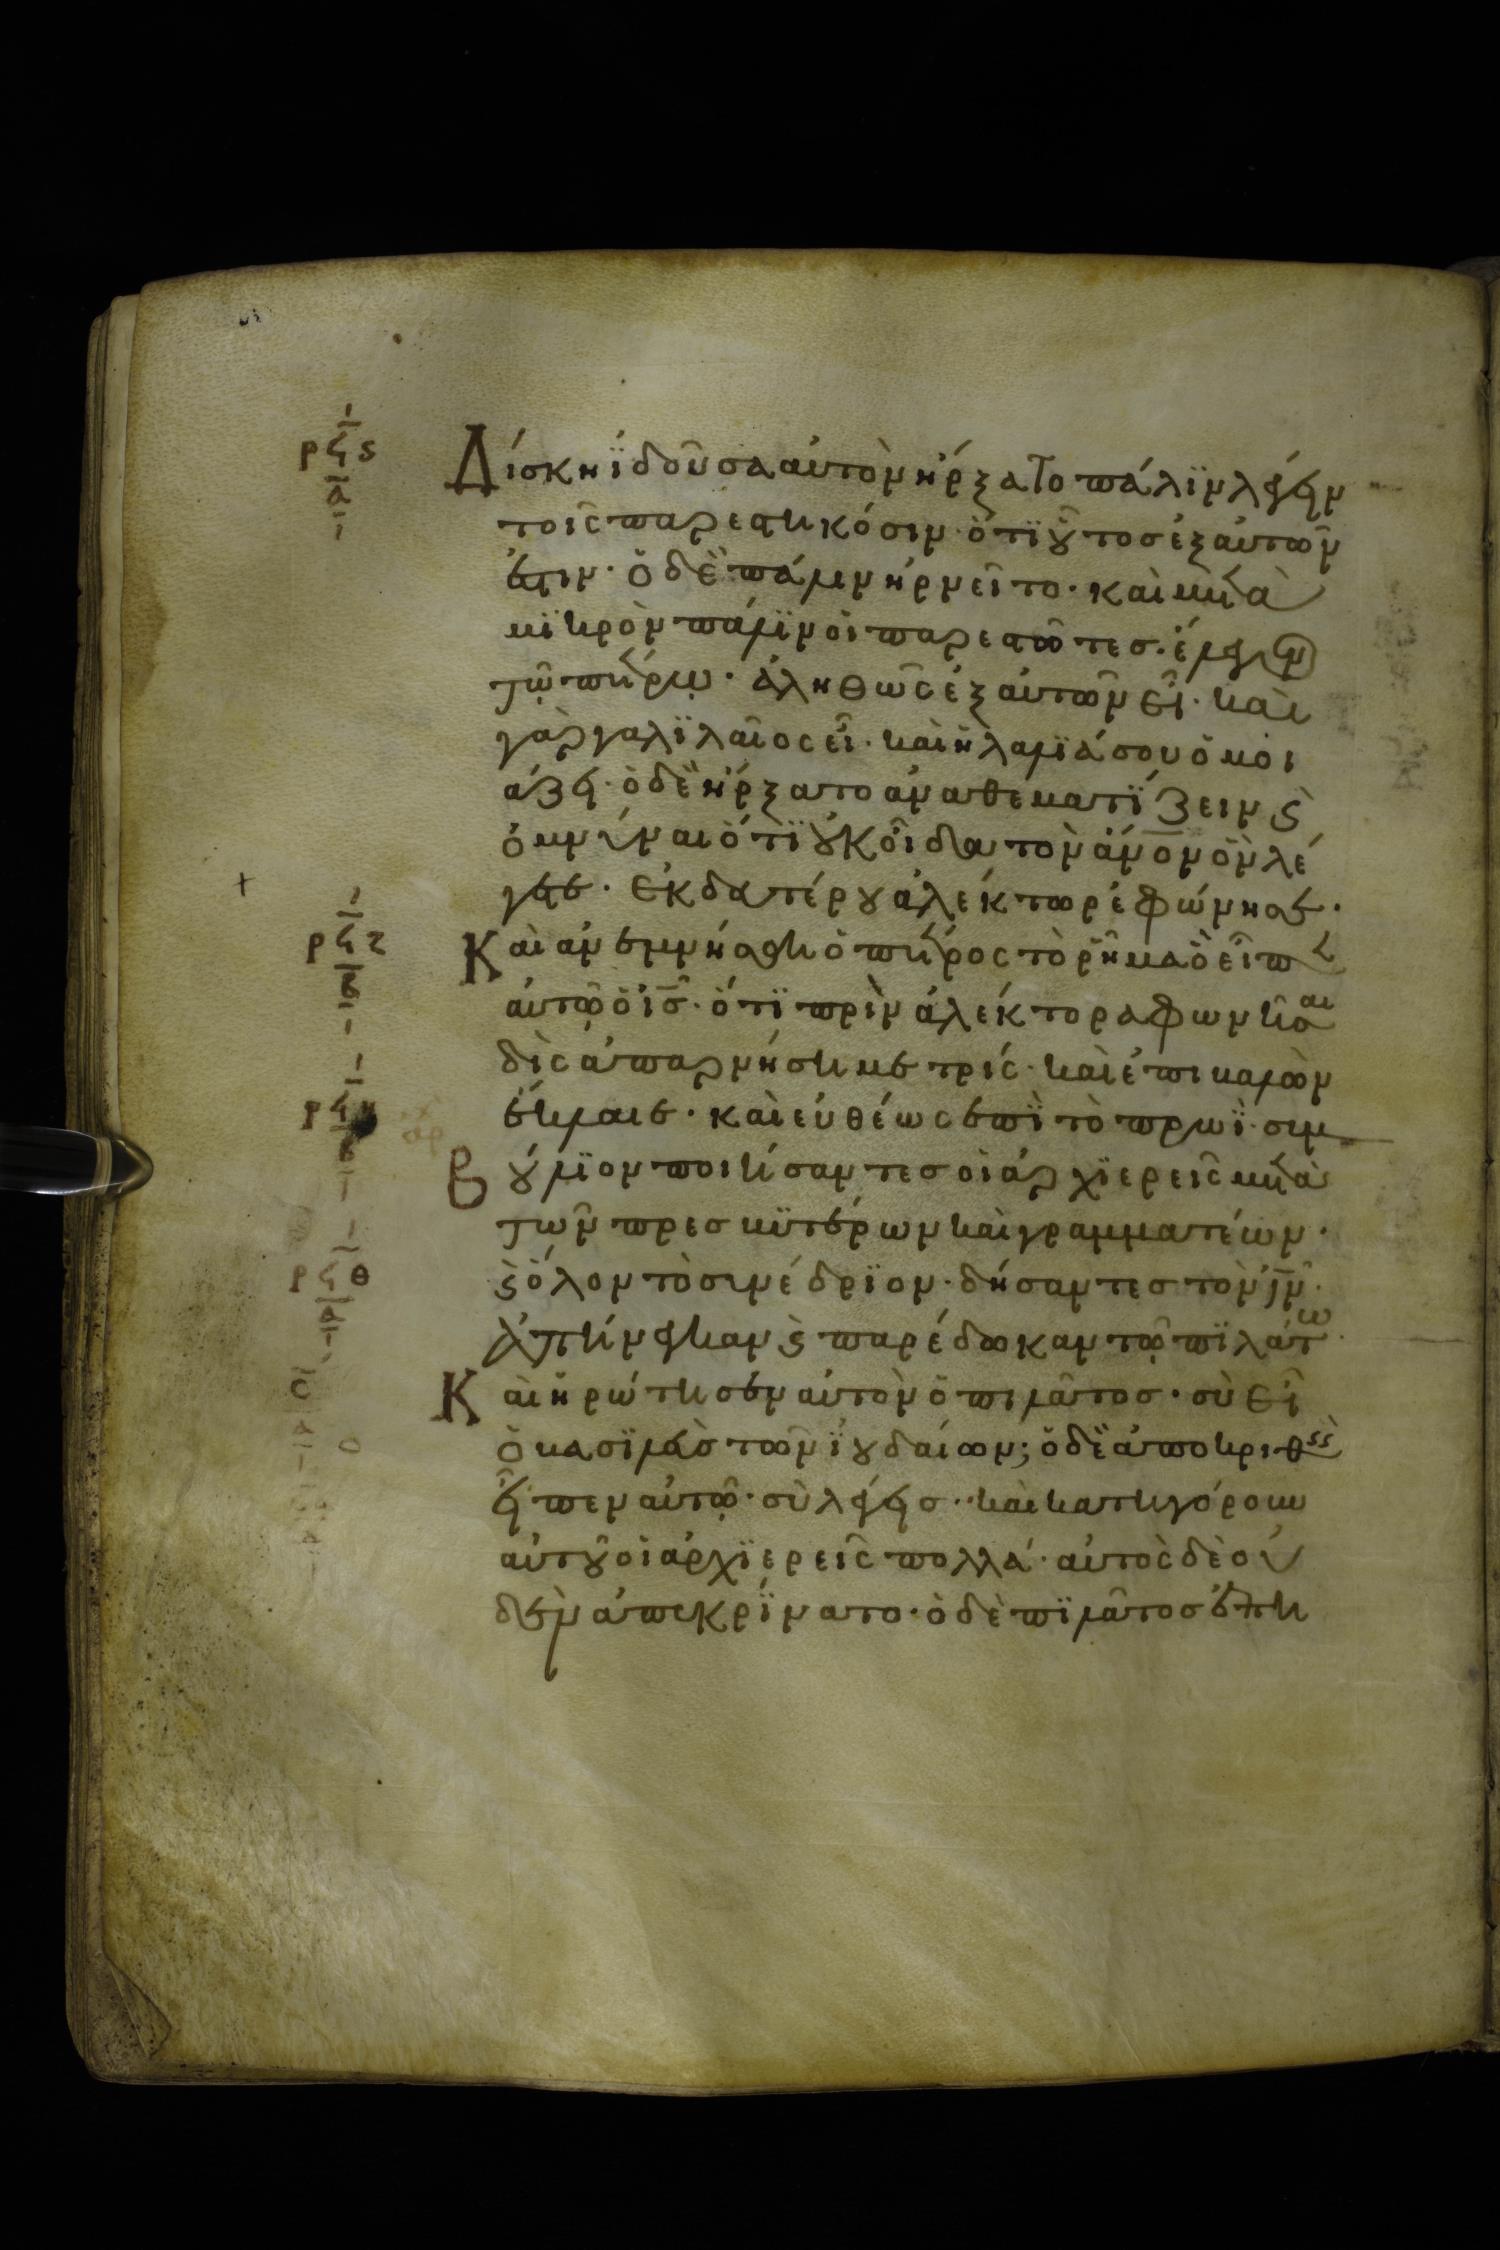 ρϟϛ
α
Δίσκη ϊδοῦσα αὐτὸν ἤρξατο πάλϊν λέγειν
τοῖς παρεστηκόσιν· ὅτϊ οὗτος ἐξ αὐτῶν
ἐστιν· ὁ δὲ πάλιν ἠρνεῖτο· καὶ μετὰ
μϊκρὸν πάλϊν οἱ παρεστῶτες· ἔλεγον
τῶ πέτρω· ἀληθῶς ἐξ αὐτῶν εἶ· καὶ
γὰρ γαλϊλαῖος εἶ· καὶ ἡ λαλϊά σου ὁμοι
άζει· ὁ δὲ ἤρξατο ἀναθεματΐζειν ϗ
ὀμνύναι ὅτϊ οὐκ οἶδα τὸν ἄν̅ο̅ν̅ ὃν λέ
γετε· ἐκ δευτέρου ἀλέκτωρ ἐφώνησε·
ρϟζ
β
Καὶ ἀνεμνήσθη ὁ πέτρος τὸ ῥῆμα ὃ εἶπεν
αὐτῶ ὁ ι̅σ̅· ὅτϊ πρὶν ἀλέκτορα φωνῆσαι
δὶς ἀπαρνήση με τρίς· καὶ ἐπιβαλὼν
ρϟη
β
ἔκλαιε· καὶ εὐθέως ἐπῒ τὸ πρωῒ· συμ
βούλϊον ποιήσαντες οἱ ἀρχϊερεῖς μετὰ
τῶν πρεσβϋτέρων καὶ γραμματέων·
ρϟθ
α
ϗ ὅλον τὸ συνέδρϊον· δήσαντες τὸν ι̅ν̅·
ἀπήνεγκαν ϗ παρέδωκαν τῶ πϊλάτω·
σ
α
Καὶ ἠρώτησεν αὐτὸν ὁ πιλᾶτος· σὺ εἶ
ὁ βασϊλεὺς τῶν ϊουδαίων; ὁ δὲ ἀποκριθεὶς
εἶπεν αὐτῶ· σὺ λέγεις· καὶ κατηγόρουν
αὐτοῦ οἱ ἀρχϊερεῖς πολλά· αὐτὸς δὲ οὐ
δὲν ἀπεκρΐνατο· ὁ δὲ πϊλᾶτος ἐπη